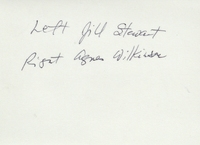 Left Jill Stewart
Right Agnes Wilkinson